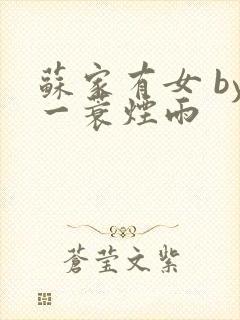 蘇家有女 by
一蓑煙雨
蒼莹文紫